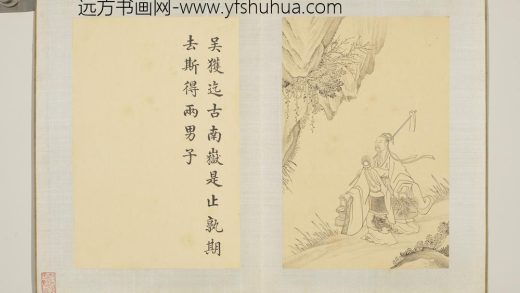 远方书画网-www.yfshuhua.com
吴獲迄古南嶽是止孰期
去斯得兩男子